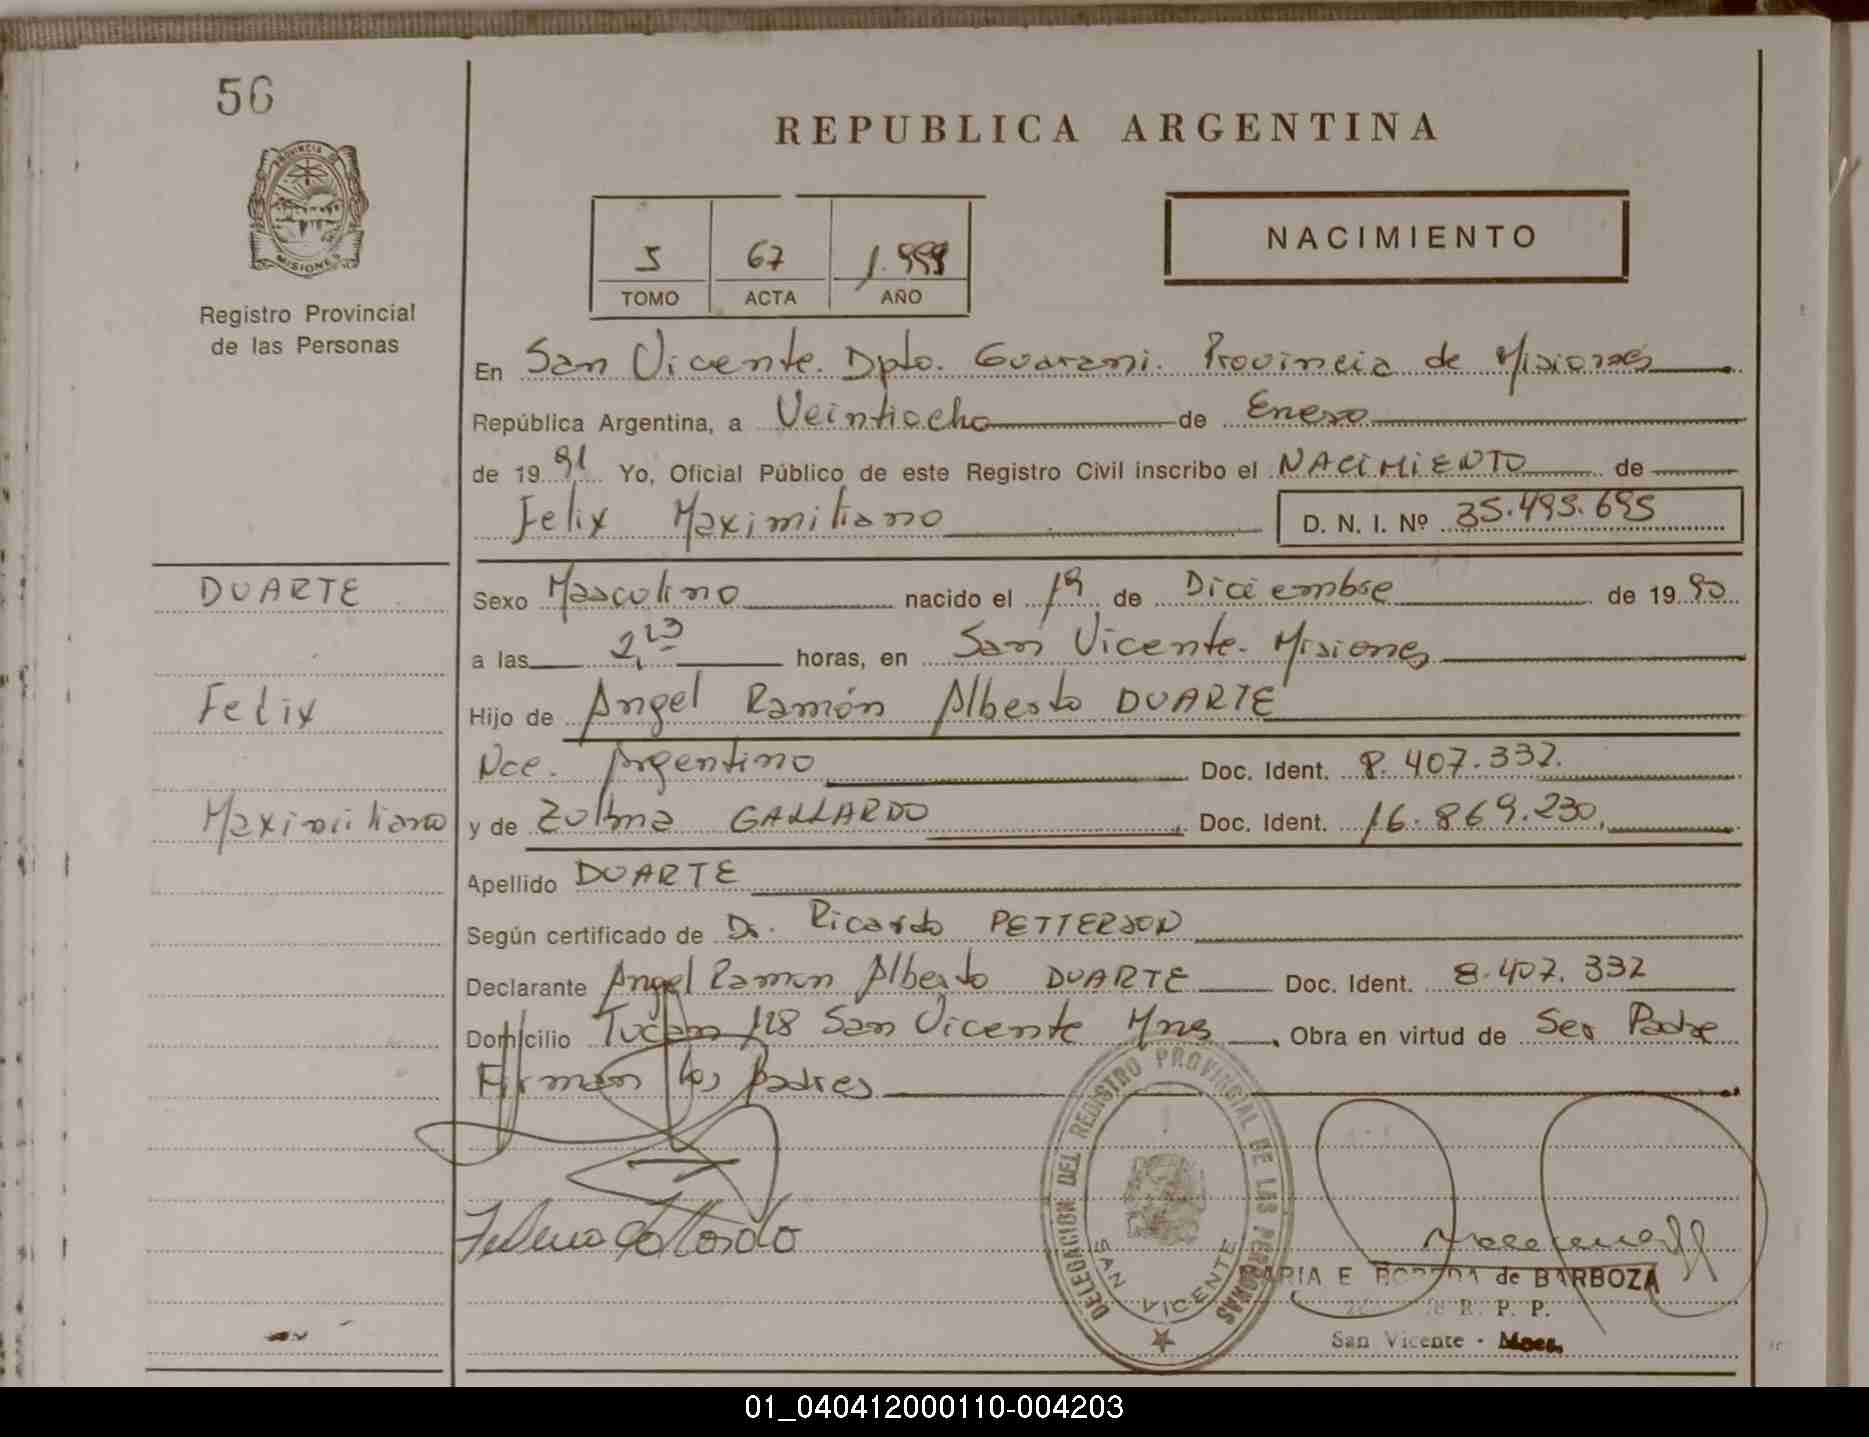 56
REPUBLICA ARGENTINA
PROVINCIA DE
MISIONES
NACIMIENTO
5 67
TOMO ACTA AÑO
Registro Provincial
de las Personas
En San Vicente. Dpto. Guarani. Provincia de Misiones
República Argentina, a Veintiocho de Enero
de 19 91 Yo, Oficial Público de este Registro Civil inscribo el NACIMIENTO de
Felix Maximiliano D. N. I. Nº 35.495.695
DUARTE
Sexo Masculino nacido el 19 de Diciembre de 19 90
a las 2,23 horas, en San Vicente. Misiones
Felix
Hijo de Angel Ramón Alberto DUARTE
Nce. Argentino Doc. Ident. 8.407.332.
Maximiliano
y de Zulma GALLARDO Doc. Ident. 16.869.230.
Apellido DUARTE
Según certificado de Dr. Ricardo PETTERSON
Declarante Angel Ramon Alberto DUARTE Doc. Ident. 8.407.332
Domicilio Tucan 128 San Vicente Mnes. Obra en virtud de Ser Padre
Firman los padres
DELEGACION DEL REGISTRO PROVINCIAL DE LAS PERSONAS
SAN VICENTE
MARIA E. de BARBOZA
R. P. P.
San Vicente - Mnes.
01_040412000110-004203